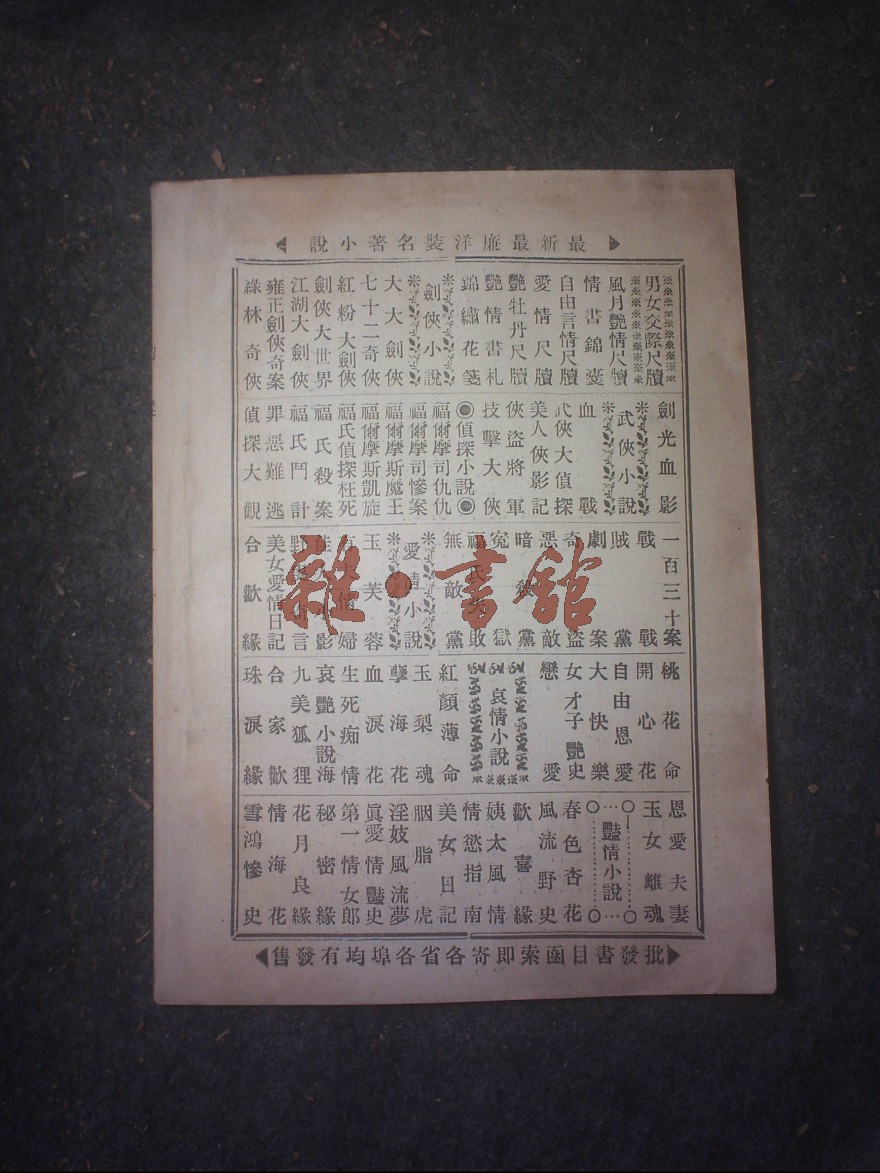 最新最廉洋裝名著小說
男女交際尺牘
風月艷情尺牘
情書錦囊
自由言情尺牘
愛情尺牘
艷牡丹尺牘
艷情書札
錦繡花箋
劍俠小說
大大劍俠
七十二奇俠
紅粉大劍俠
劍俠大世界
江湖大劍俠
雍正劍俠奇案
綠林奇俠
劍光血影
武俠小說
血戰
武俠大偵探
美人俠影記
俠盜將軍
技擊大俠
◉偵探小說◉
福爾摩司仇仇
福爾摩司慘案
福爾摩斯魔王
福爾摩斯凱旋
福氏偵探枉死
福氏殺案
福氏鬥計
罪惡難逃
偵探大觀
一百三十案
戰戰
賊黨
劇案
奇盜
惡敵
暗殺黨
冤獄
福氏失敗
無敵黨
愛情小說
玉芙蓉
情婦
佳人影
野言
美女愛情日記
合歡緣
桃花命
開心花
自由恩愛
大快樂
女才子艷史
戀愛
哀情小說
紅顏薄命
玉梨魂
孽海花
血淚花
生死痴情
哀艷小說海
九美狐狸
合家歡
珠淚緣
恩愛夫妻
玉女離魂
豔情小說
春色杏花
風流野史
歡喜緣
姨太風情
情慾指南
美女日記
胭脂虎
淫妓風流夢
眞愛情豔史
第一情女郎
秘密緣
花月良緣
情海花
雪鴻慘史
批發書目函索即寄各省各埠均有發售
雜·書舘